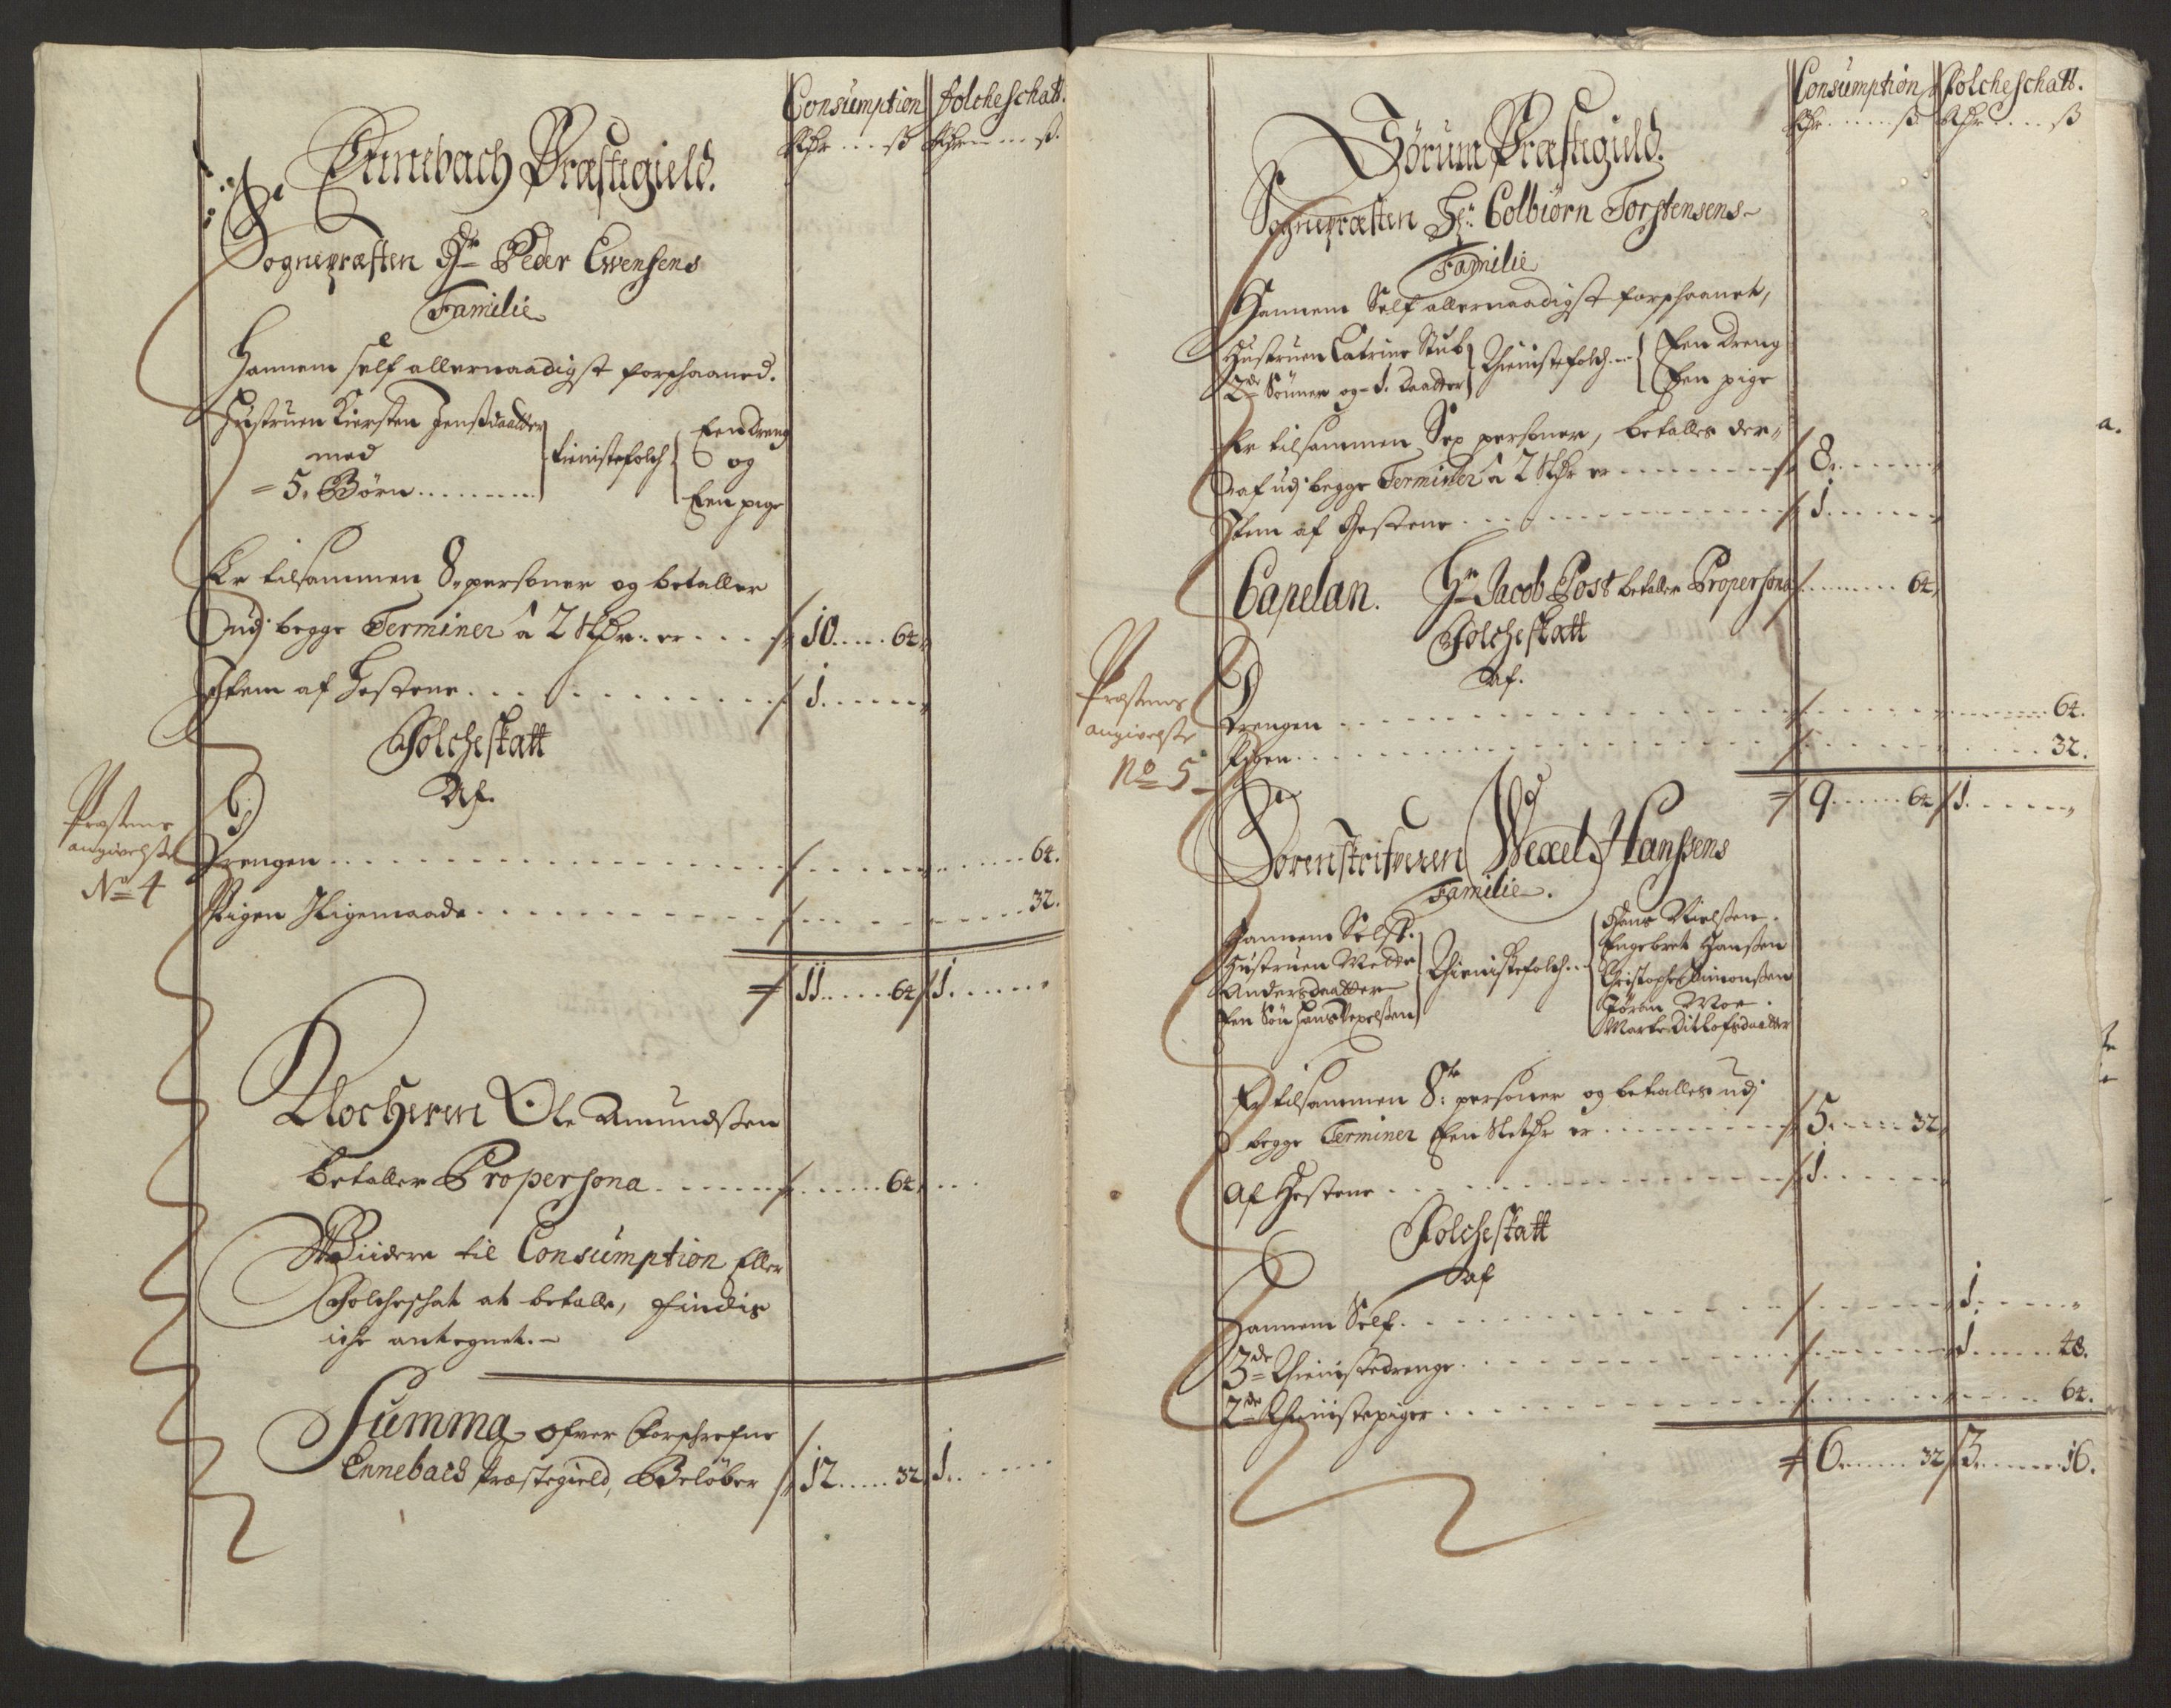 Consumption folcheschatt.
Rdr ... ß Rdr ... ß.
Ennebach Præstegield.
Sognepræsten Hr Peder Ewensens
Familie
Hannem self allernaadigst forschaaned.
Hustruen Kiersten Jensdaatter
med
5. Børn
tienistefolch
Een Dreng
og
Een pige
Er tilsammen 8. personer og betaller
udj begge Terminer â 2 Rdr. er 10 64
Item af Hestene 1
Folcheskatt
Af.
Præstens
angivelse
No 4
Drengen 64.
Pigen Iligemaade 32.
11 64 1
Klocheren Ole Amundsen
betaller Propersona 64
Viidere til Consumption Eller
Folcheschat at betalle, findis
iche antegnet.
Summa ofver forschrefne
Ennebach Præstegield, Beløber 12 32 1
Consumption folcheschatt.
Rdr ... ß Rdr ... ß
Sørum Præstegield.
Sognepræsten Hr. Colbiørn Torstensens
Familie
Hannem Self allernaadigst forschaanet,
Hustruen Catrine Stub
2de Sønner og 1. Daatter
Thienistefolch
Een Dreng
Een pige
Er tilsammen Sex personer, betalles der
af udj begge Terminer â 2 Rdr er 8
Item af Hestene 1
Capelan. Hr Jacob Post betaller Propersona 64
Folcheskatt
Af.
Præstens
angivelse
No 5
Drengen 64.
Pigen 32.
9 64 1
Sorenskrifveren Wexel Hanssens
Familie.
Hannem Self.
Hustruen Mette
Andersdaatter
Een Søn Hans Wexelsen
Thienistefolch
Hans Nielsen.
Engebret Hansen
Christopher Simonsen
Jøran Moe.
Marte Ditlofsdaatter
Er tilsammen 8te personer og betalles udj
begge Terminer Een Sletdr er 5 32
Af Hestene 1
Folcheskatt
af
Hannem Self 1
3de Thienistedrenge 1 48.
2de Thienistepiger 64.
6 32 3 16.